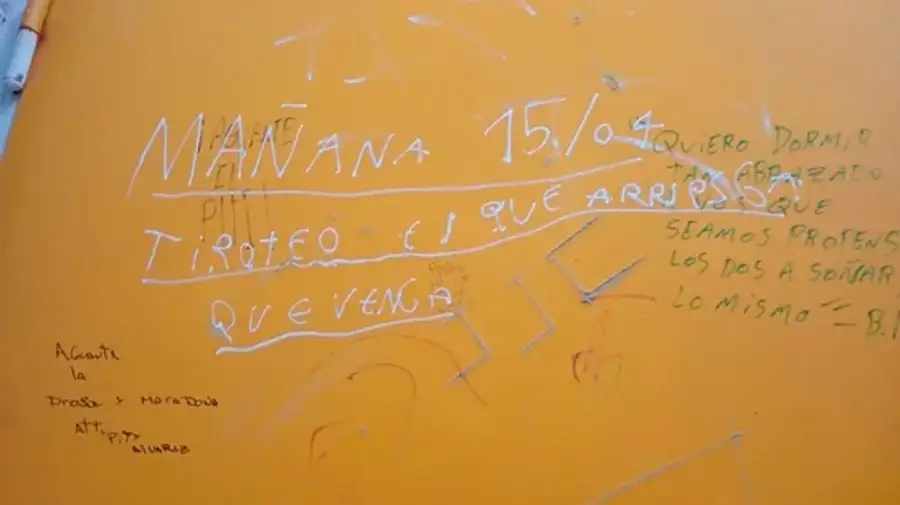 MAÑANA 15/04
TIROTEO EL QUE ARRIESGA
QUE VENGA
QUIERO DORMIR
TAN ABRAZADO
QUE
SEAMOS PROPENS
LOS DOS A SOÑAR
LO MISMO
AGUANTE
EL
PITY
Aguante
la
Droga y MARADONA
Att: Pity
ALVAREZ